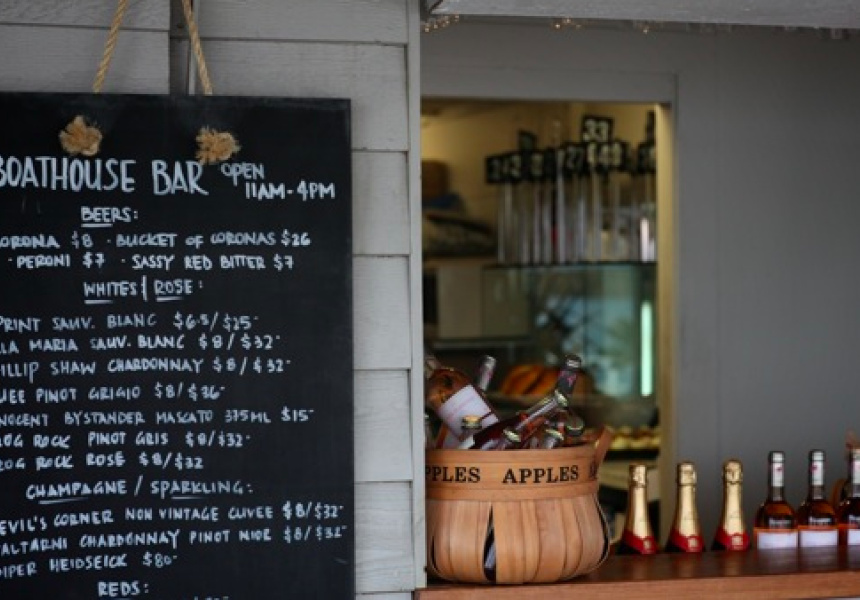 BOATHOUSE BAR OPEN
11AM-4PM
BEERS:
CORONA $8 · BUCKET OF CORONAS $26
· PERONI $7 · SASSY RED BITTER $7
WHITES / ROSE:
PRINT SAUV. BLANC $6.5/$25-
LA MARIA SAUV. BLANC $8/$32-
ILLIP SHAW CHARDONNAY $8/$32-
UEE PINOT GRIGIO $8/$36-
NNOCENT BYSTANDER MASCATO 375ML $15-
ROG ROCK PINOT GRIS $8/$32-
ROG ROCK ROSE $8/$32
CHAMPAGNE / SPARKLING:
EVIL'S CORNER NON VINTAGE CUVEE $8/$32-
ALTARNI CHARDONNAY PINOT NIOR $8/$32-
IPER HEIDSEICK $80-
REDS:
PPLES APPLES
33